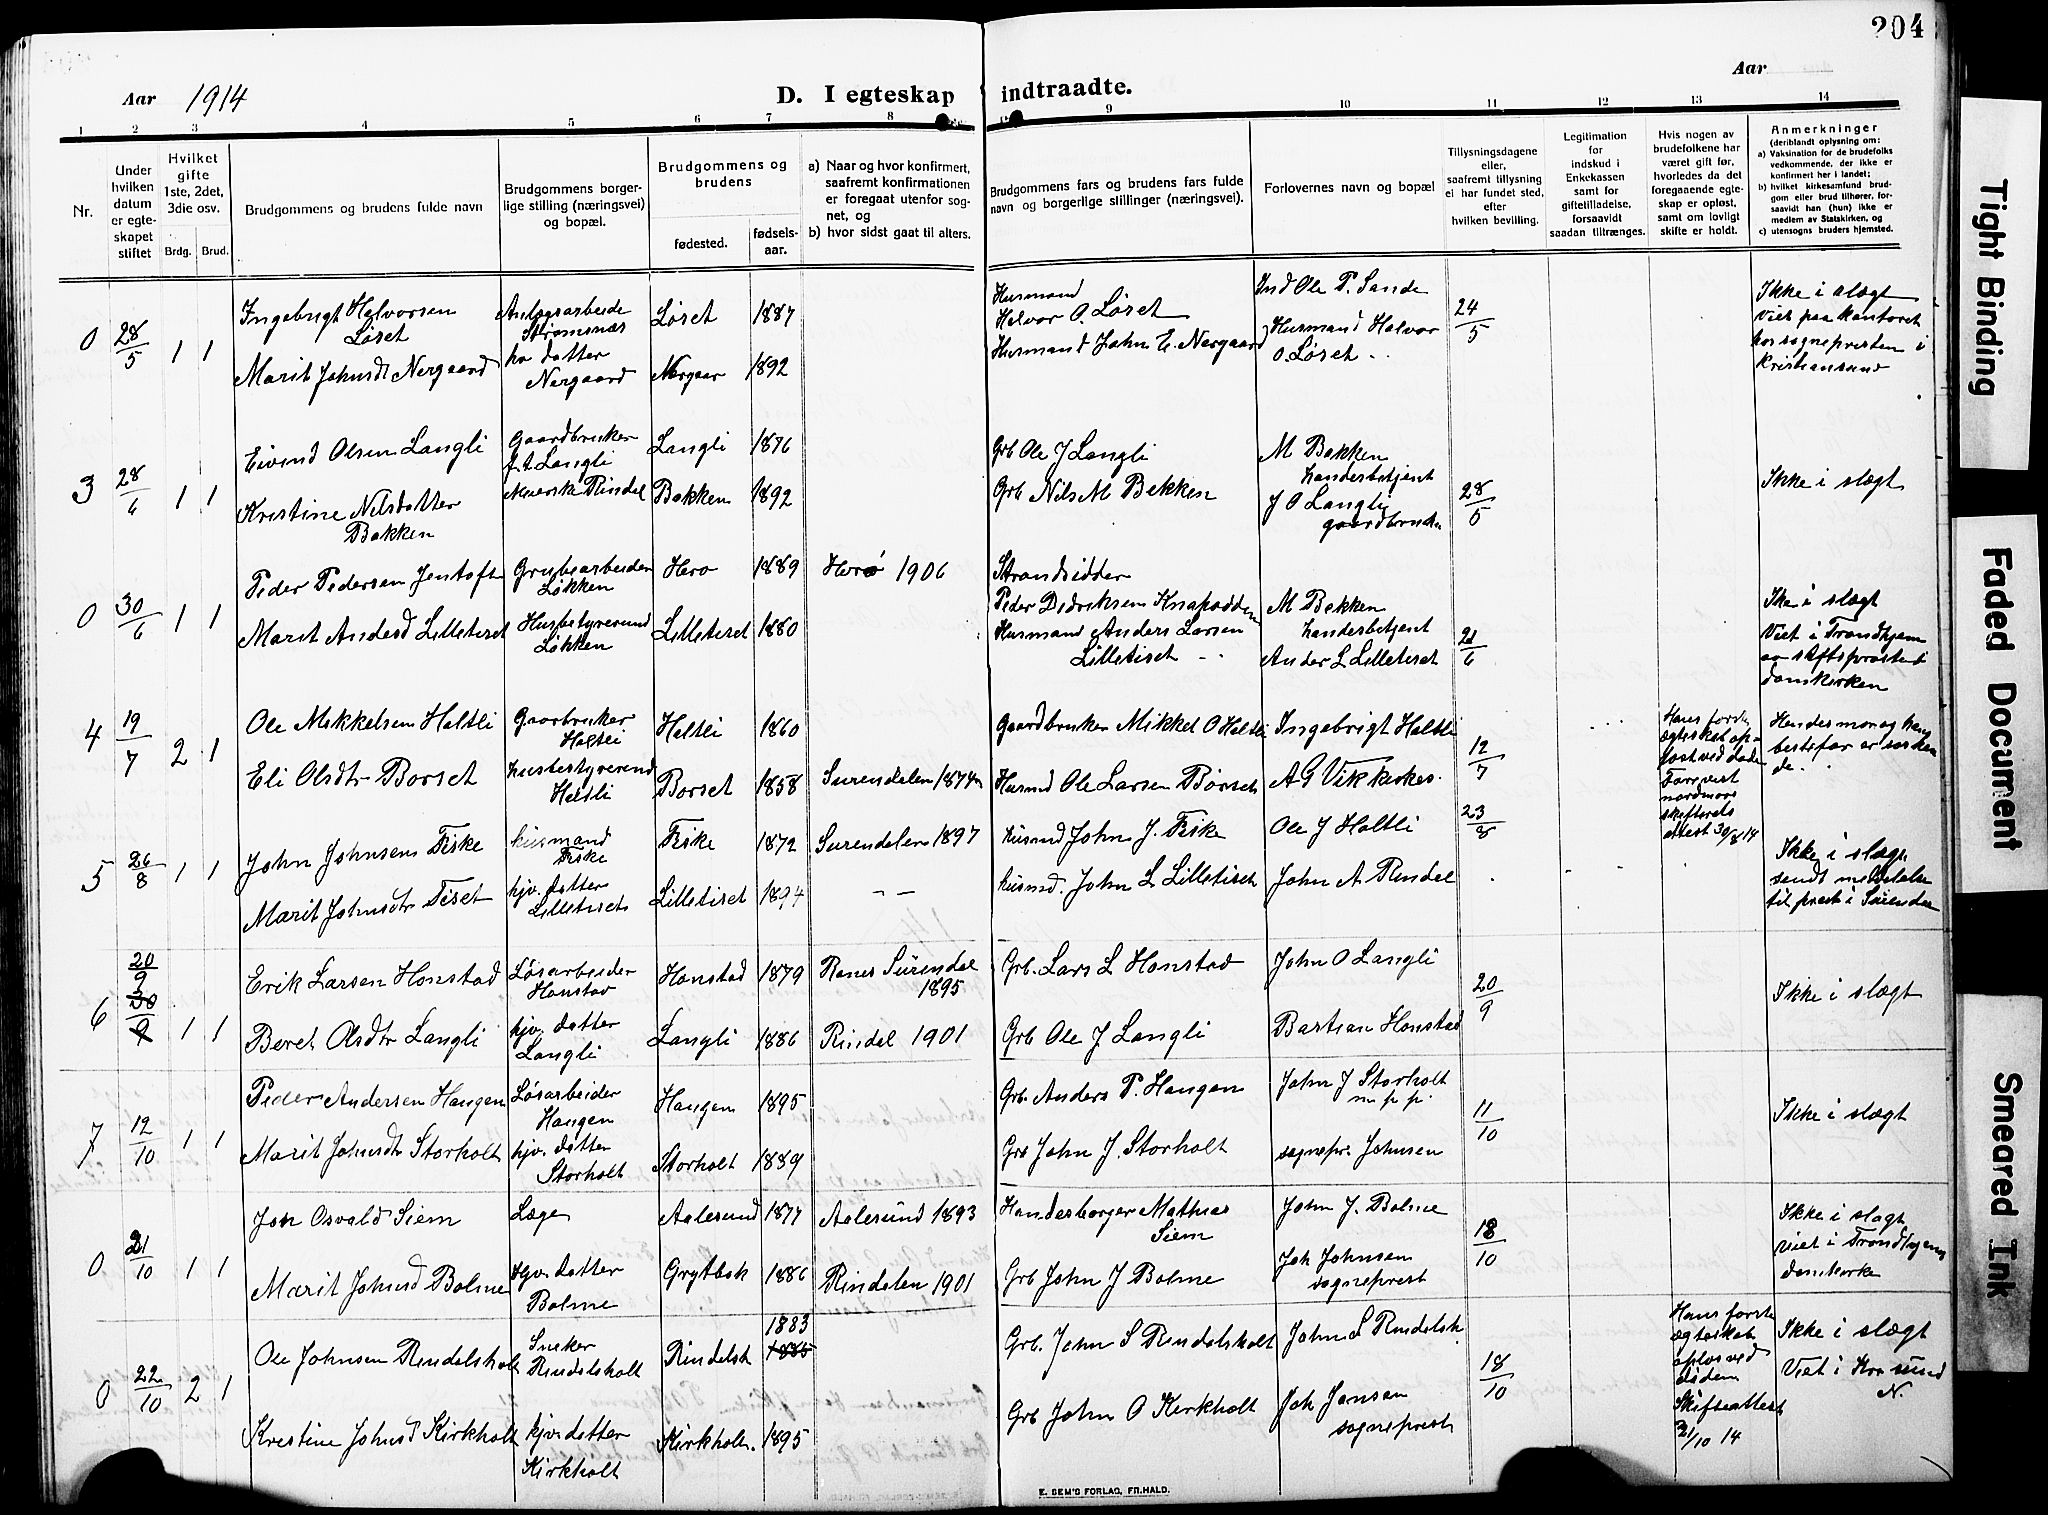 204
Aar 1914
D. I egteskap indtraadte.
Aar
1 2 3 4 5 6 7 8 9 10 11 12 13 14
Nr.
Under hvilken datum er egteskapet stiftet
Hvilket gifte 1ste, 2det, 3die osv.
Brdg. Brud.
Brudgommens og brudens fulde navn
Brudgommens borgerlige stilling (næringsvei) og bopæl.
Brudgommens og brudens
fødested.
fødselsaar.
a) Naar og hvor konfirmert, saafremt konfirmationen er foregaat utenfor sognet, og
b) hvor sidst gaat til alters.
Brudgommens fars og brudens fars fulde navn og borgerlige stillinger (næringsvei).
Forlovernes navn og bopæl
Tillysningsdagene eller, saafremt tillysning ei har fundet sted, efter hvilken bevilling.
Legitimation for indskud i Enkekassen samt for giftetilladelse, forsaavidt saadan tiltrænges.
Hvis nogen av brudefolkene har været gift før, hvorledes da det foregaaende egteskap er opløst, samt om lovligt skifte er holdt.
Anmerkninger (deriblandt oplysning om:
a) Vaksination for de brudefolks vedkommende, der ikke er konfirmert her i landet;
b) hvilket kirkesamfund brudgom eller brud tilhører, forsaavidt han (hun) ikke er medlem av Statskirken, og
c) utensogns bruders hjemsted.
0 28/5 1 1
Ingebrigt Halvorsen Løset
Anlægsarbeide Strømsnæs
Løset 1887
Husmand Halvor O. Løset
Ind Ole P. Sande
24/5
Ikke i slegt
Viet paa kantoret
hos sognepresten i
Kristiansund
Marit Johnsdt Nergaard
hv datter Nergaard
Nergaar 1892
Husmand John E. Nergaard
Husmand Halvor O. Løset
3 28/6 1 1
Eivind Olsen Langli
Gaardbruker Langli
Langli 1876
Grb Ole J Langli
M Bakken
Handesbetjent
28/5
Ikke i slægt
Kristine Nilsdatter Bakken
Rindal
Bakken 1892
Grb Nils M Bekken
J O Langli
gaardbruker
0 30/6 1 1
Peder Pedersen Jentoft
Grubearbeider Løkken
Herø 1889
Herø 1906
Strandsidder
Peder Didriksen Knapodden
M Bekken
Handesbetjent
21/6
Ike i slægt
Viet i Trondhjem
av stiftsprosten i
domkirken
Marit Andersd Lilletiset
Husbestyrerind Løkken
Lilletiset 1880
Husmand Anders Larsen Lilletiset
Ander L Lilletiset
4 19/7 2 1
Ole Mikkelsen Haltli
Gaarbruker Haltli
Haltli 1860
Gaardbruker Mikkel O Haltli
Ingebrigt Haltli
12/7
Hans første
ægteskab op-
løst ved døden
Forevist
nordmøre
skifterets
attest 30/6 14
Hendes mor og hans
bestefar er søsken
de.
Eli Olsdtr Børset
husbestyrerind Haltli
Børset 1858
Surendalen 1874
Husmd Ole Larsen Børset
A G Vikkirkes.
5 26/8 1 1
John Johnsen Fiske
husmand Fiske
Fiske 1872
Surendalen 1897
husmd John J. Fiske
Ole J Haltli
23/8
Ikke i slegt
sendt meddelelse
til prest i Surendal
Marit Johnsdtr Tiset
hjv. datter Lilletiset
Lilletiset 1894
– –
husmd. John L Lilletiset
John A Rindal
6 20/9 30/9 1 1
Erik Larsen Honstad
Løsarbeider Honstad
Honstad 1879
Ranes Surendal 1895
Grb. Lars L Honstad
John O Langli
20/9
Ikke i slægt
Beret Olsdtr Langli
hjv. datter Langli
Langli 1886
Rindal 1901
Grb Ole J Langli
Bastian Honstad
7 12/10 1 1
Peder Andersen Haugen
Løsarbeider Haugen
Haugen 1895
Grb. Anders P. Haugen
John J Storholt
m. p. p.
11/10
Ikke i slægt
Marit Johnsdt Storholt
hjv. datter Storholt
Storholt 1889
Grb John J. Storholt
sognepr. Johnsen
0 21/10 1 1
Jon Osvald Siem
Læge
Aalesund 1877
Aalesund 1893
Handesborger Mathias Siem
John J. Bolme
18/10
Ikke i slægt
viet i Trondhjems
domkirke
Marit Johnsd Bolme
Hjv. datter Bolme
Grytbak 1886
Rindalen 1901
Grb John J Bolme
Joh Johnsen
sogneprest
0 22/10 2 1
Ole Johnsen Rindalsholt
Snekker Rindalsholt
Rindalsh 1883 1885
Grb. John S Rindalsholt
John S Rindalsh.
18/10
Hans første
ægteskab
opløs ved
døden
Skifteattest
21/10 14
Ikke i slægt
Viet i Krasund
N.
Kristine Johnsd Kirkholt
hjv. datter Kirkholt
Kirkholt. 1895
Grb John O Kirkholt
Joh Jonsen
sogneprest
E. SEM'S FORLAG, FR.HALD.
Tight Binding
Faded Document
Smeared Ink